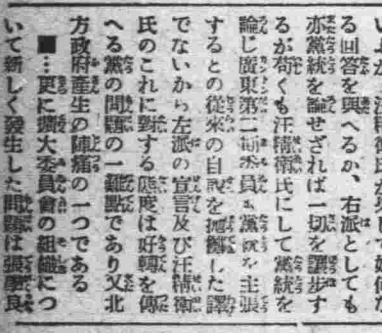 る回答を與へるか、右派としても
亦黨統を論せざれば一切を讓歩す
るが苟くも汪精衛氏にして黨統を
論じ廣東第二期委員も黨統を主張
するとの從來の自説を抛擲した譯
でないから左派の宣言及び汪精衛
氏のこれに對する態度は好轉を傳
へる黨の問題の一難點であり又北
方政府産生の陣痛の一つである
■…更に擴大委員會の組織につ
いて新しく發生した問題は張學良